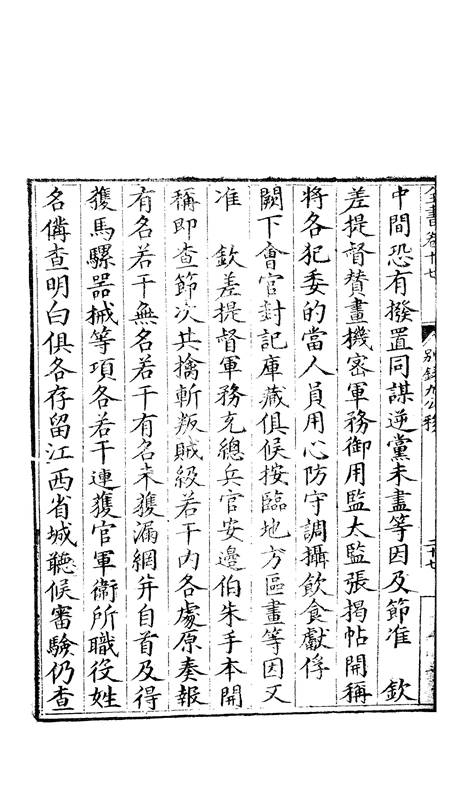 全書卷十七 別錄九公移 二十七
中間恐有撥置同謀逆黨未盡等因及節准 欽
差提督贊畫機密軍務御用監太監張揭帖開稱
將各犯委的當人員用心防守調攝飲食獻俘
闕下會官對記庫藏俱候按臨地方區畫等因又
准 欽差提督軍務充總兵官安邊伯朱手本開
稱即查節次共擒斬叛賊級若干內各處原奏報
有名若干無名若干有名未獲漏網并自首及得
獲馬騾器械等項各若干連獲官軍衛所職役姓
名備查明白俱各存留江西省城聽候審驗仍查